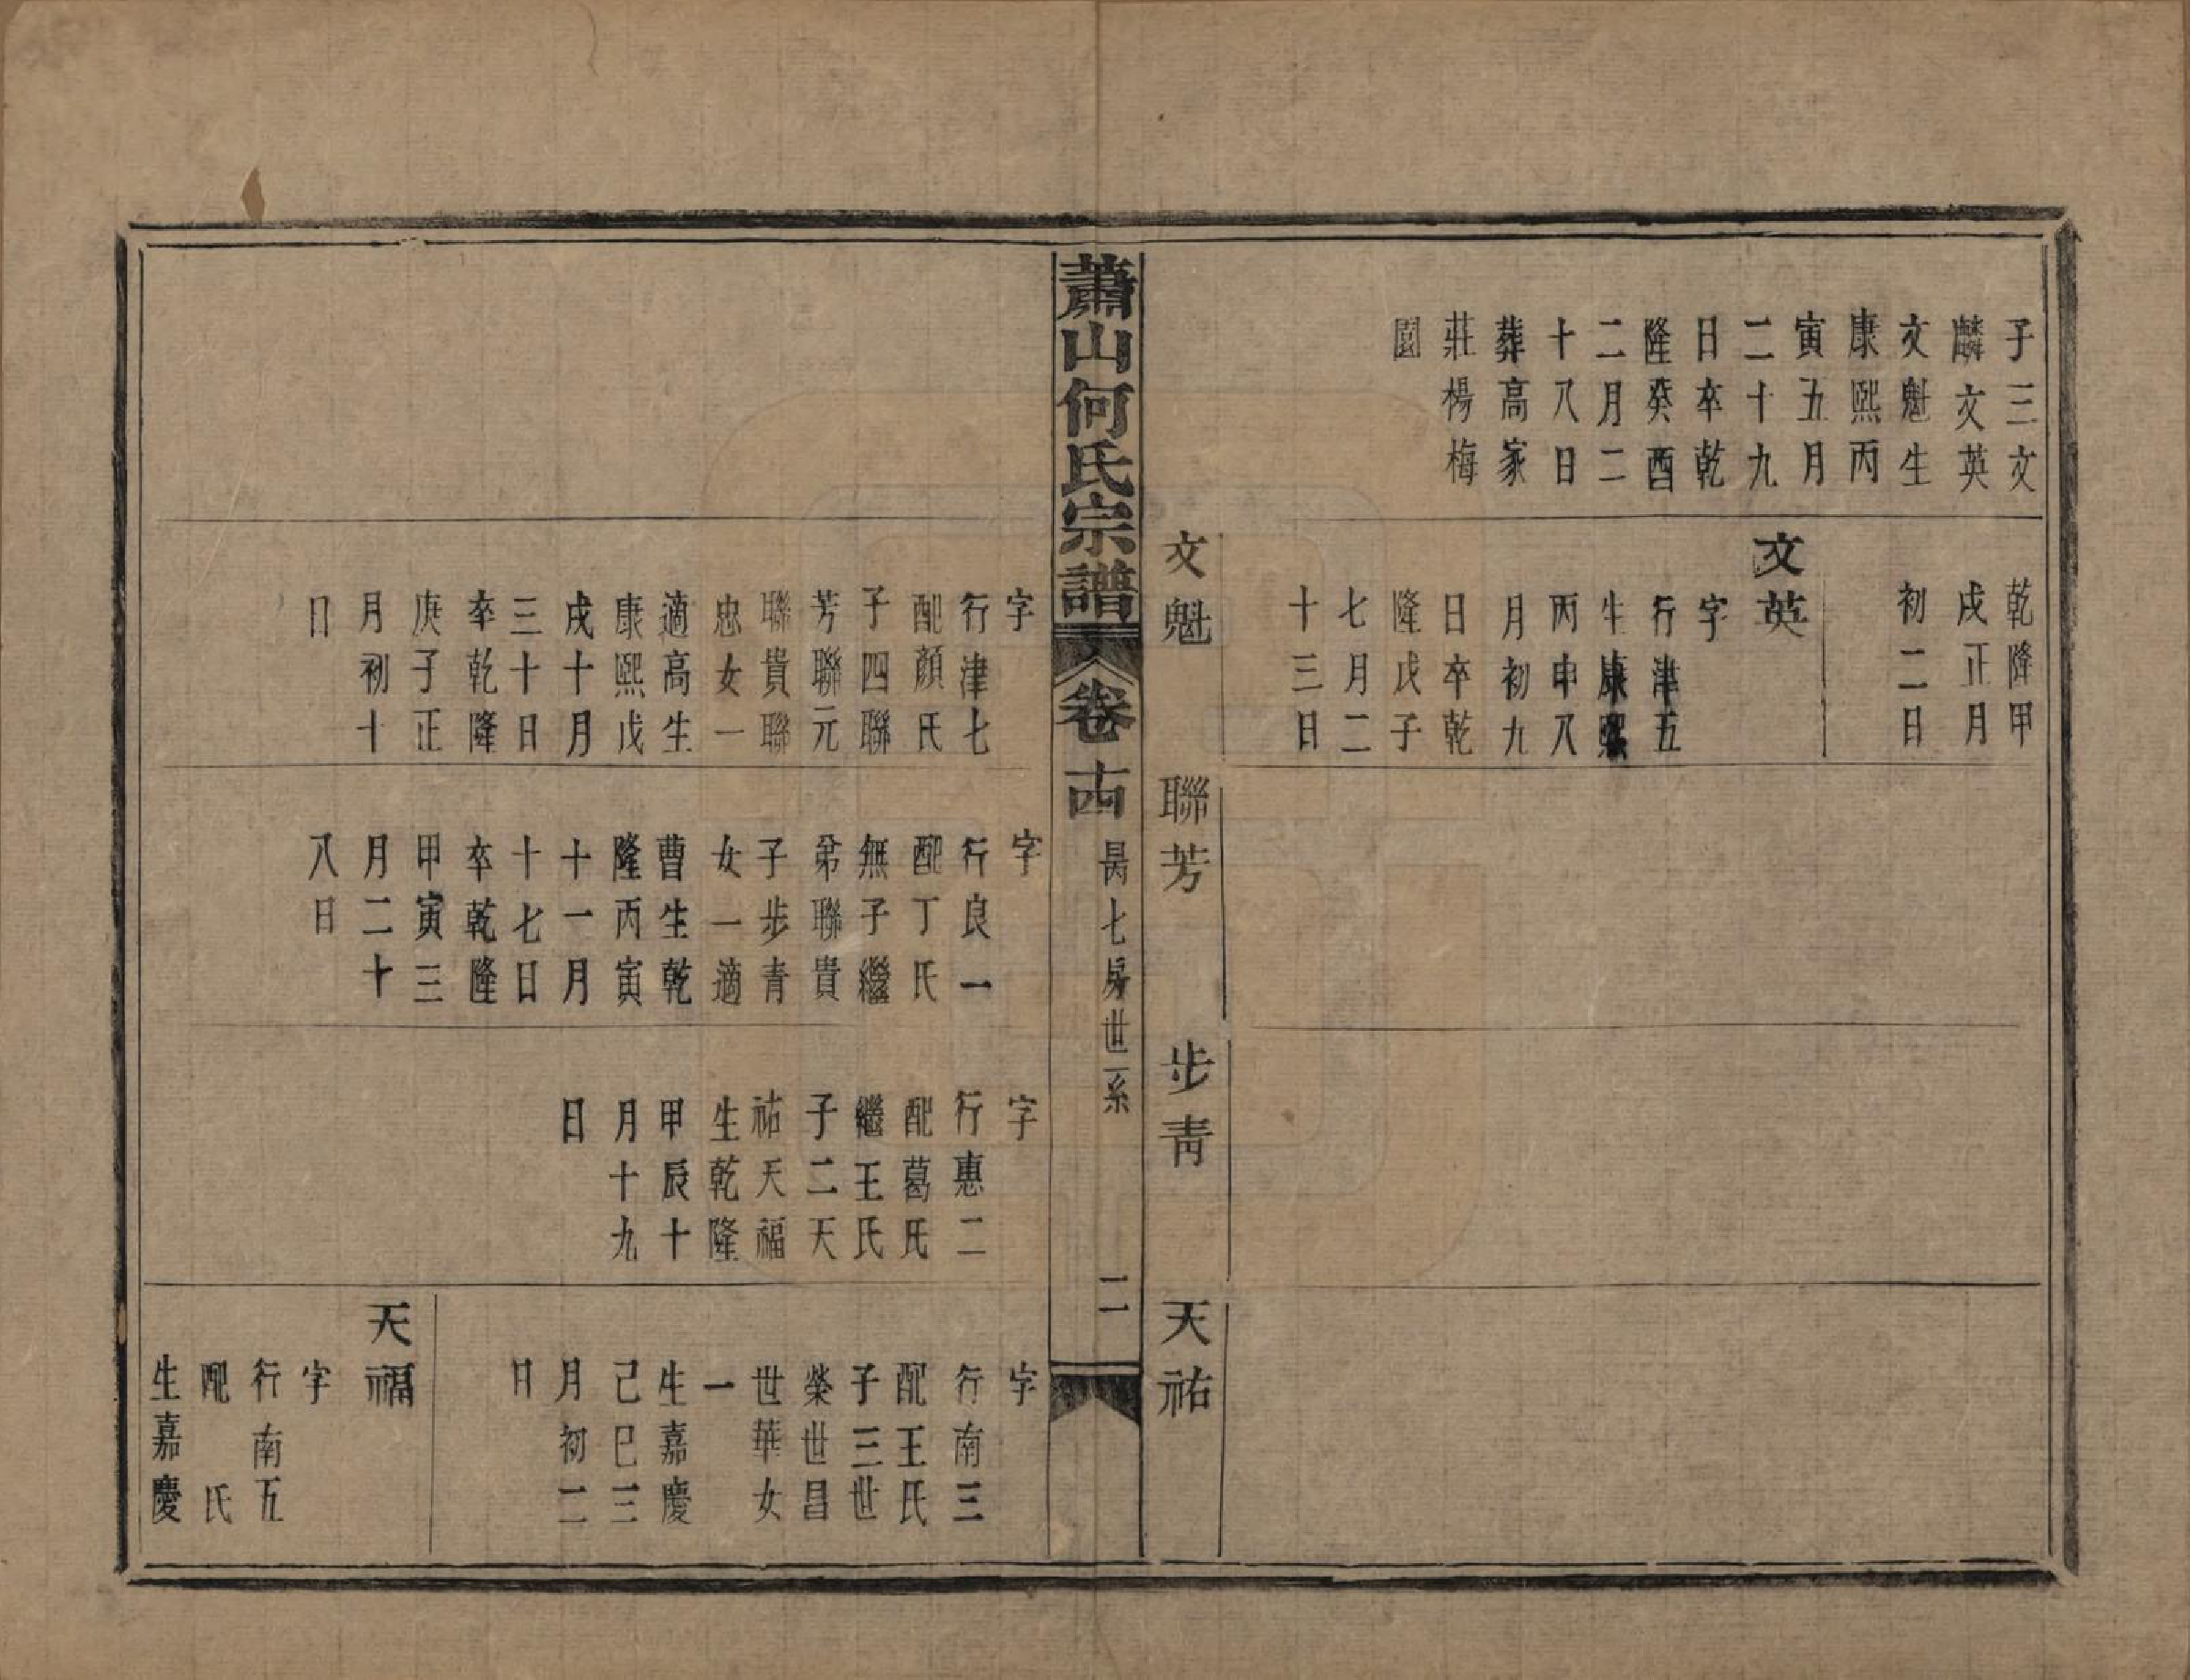 子三文
麟文英
文魁生
康熙丙
寅五月
二十九
日卒乾
隆癸酉
二月二
十八日
葬高家
莊楊梅
園
乾隆甲
戌正月
初二日
文英
字
行津五
生康熙
丙申八
月初九
日卒乾
隆戊子
七月二
十三日
文魁
聯芳
步青
天祐
蕭山何氏宗譜
卷十四
昺七房世系
二
字
行津七
配顏氏
子四聯
芳聯元
聯貴聯
忠女一
適高生
康熙戊
戌十月
三十日
卒乾隆
庚子正
月初十
日
字
行良一
配丁氏
無子繼
弟聯貴
子步青
女一適
曹生乾
隆丙寅
十一月
十七日
卒乾隆
甲寅三
月二十
八日
字
行惠二
配葛氏
繼王氏
子二天
祐天福
生乾隆
甲辰十
月十九
日
字
行南三
配王氏
子三世
榮世昌
世華女
一
生嘉慶
己巳三
月初二
日
天福
字
行南五
配　氏
生嘉慶